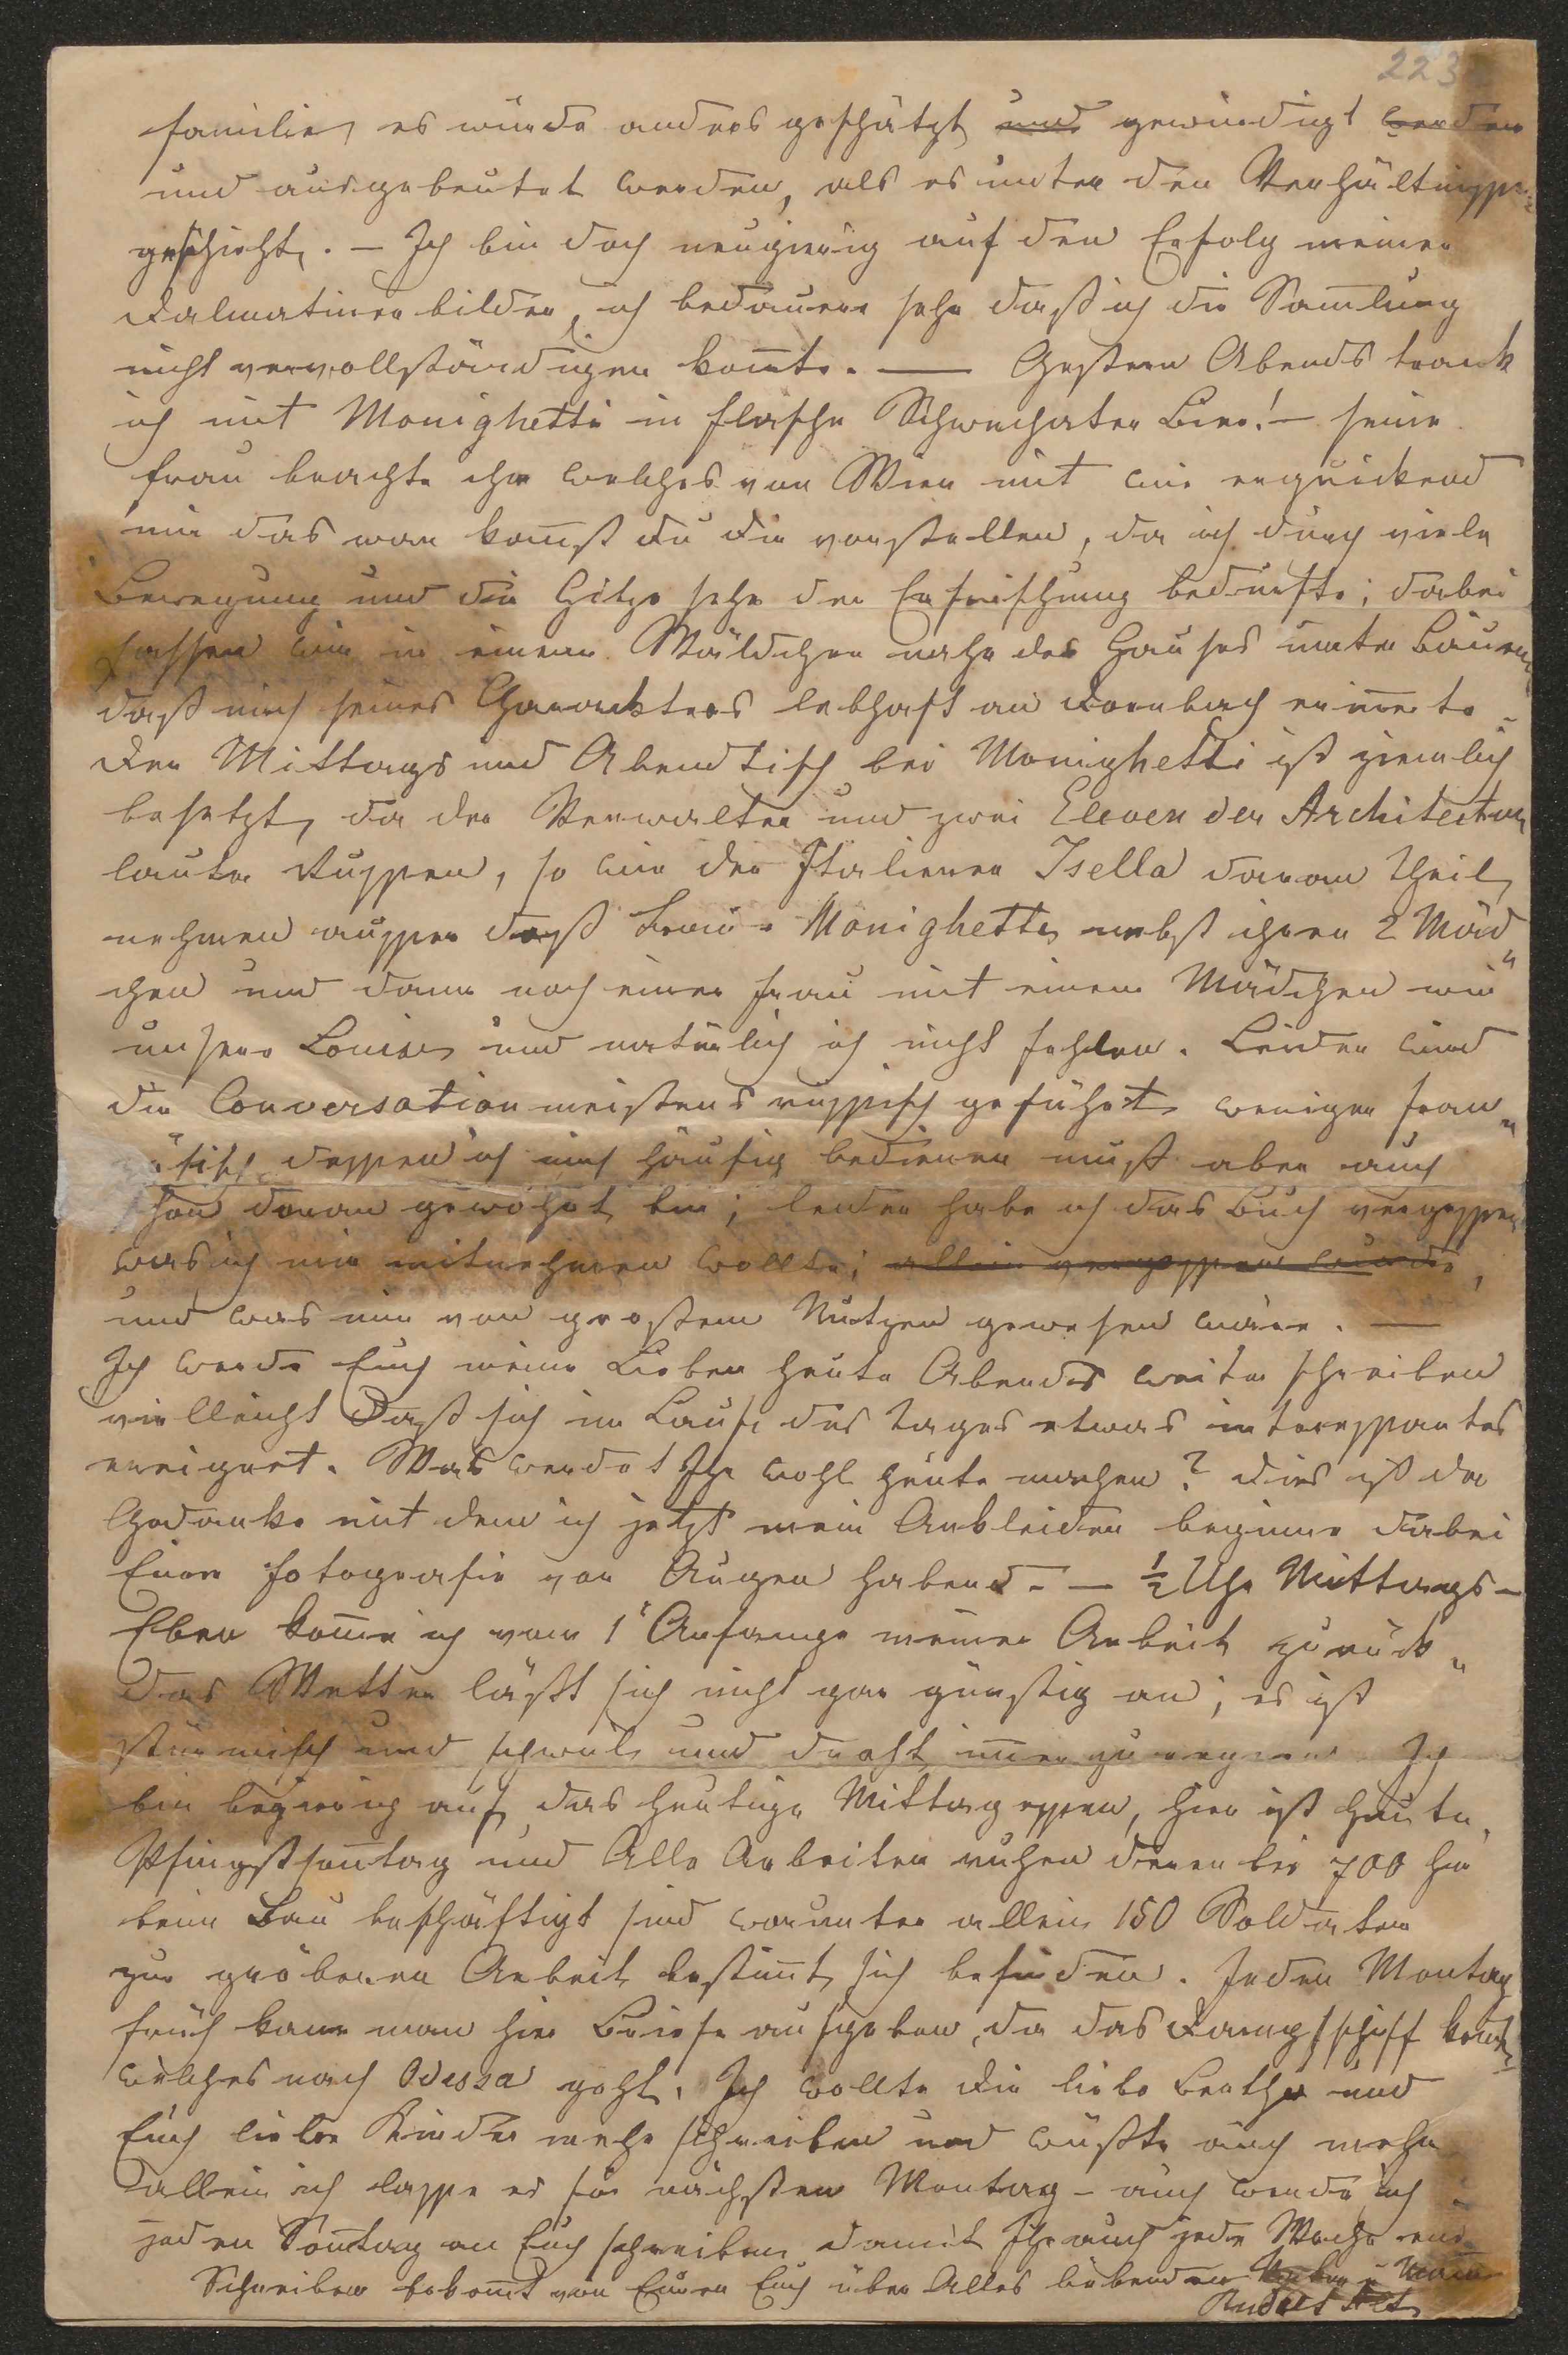 223
familie, es würde anders geschätzt und gewürdigt werden
und ausgebeutet werden, als es unter den Verhältnissen
geschieht. – Ich bin doch neugierig auf den Erfolg meiner
Dalmatinerbilder, ich bedauere sehr daß ich die Sam̄lung
nicht vervollständigen kon̄te. — Gestern Abends trank
ich mit Monighetti in flasche Schwechater Bier! – seine
Frau brachte ihm welches von Wien mit wie erquickend
mir das war kan̄st du dir vorstellen, da ich durch viele
Bewegung und die Hitze sehr der Erfrischung bedürfte; dabei
sassen wir in einem Wäldchen nahe des Hauses unter Bäumen
daß mich seines Charackters lebhaft an Dornbach erin̄erte
Der Mittags und Abendtisch bei Monighetti ist ziemlich
besetzt, da der Verwalter und zwei Eleven der Architectur
lauter Russen, so wie der Italiener Isella daran theil
nehmen ausser daß Frau Monighetti nebst ihren 2 Mäd„
chen und dann noch einer Frau mit einem Mädchen wie
unsere Louise und natürlich ich nicht fehlen. Leider wird
die Conversation meistens russisch geführt weniger fran„
zösisch dessen ich mich häufig bedienen muß aber auch
schon daran gewöhnt bin; leider habe ich das Buch vergessen
was ich mir mitnehmen wollte; allein vergessen wurde,
und was mir von großem Nutzen gewesen wäre. —
Ich werde Euch meine Lieben heute Abends weiter schreiben
vielleicht daß sich im Laufe des Tages etwas interessantes
ereignet. Was werdet Ihr wohl heute machen? dies ist der
Gedanke mit dem ich jetzt mein Ankleiden beginne dabei
Eure Fotografie vor Augen habend. – ½ Uhr Mittags –
Eben kom̄e ich vom 1" Anfange meiner Arbeit zurück„
das Wetter läßt sich nicht gar günstig an; es ist
stürmisch und schwül und droht im̄er zu regnen. Ich
bin begierig auf das heutige Mittagessen, hier ist heute
Pfingstson̄tag und Alle Arbeiter ruhen deren bei 700 hier
beim Bau beschäftigt sind worunter allein 150 Soldaten
zur gröberen Arbeit bestim̄t sich befinden. Jeden Montag
früh kann man hier Briefe aufgeben, da das Dampfschiff kom̄t
welches nach Odessa geht. Ich wollte dir liebe Bertha und
Euch liebe Kinder mehr schreiben und wüßte auch mehr
allein ich lasse es für nächsten Montag – auch werde ich
jeden Son̄tag an Euch schreiben damit Ihr auch jede Woche ein
Schreiben bekom̄t von Eurem Euch über Alles liebenden Vater u Mann
Rudolf Alt